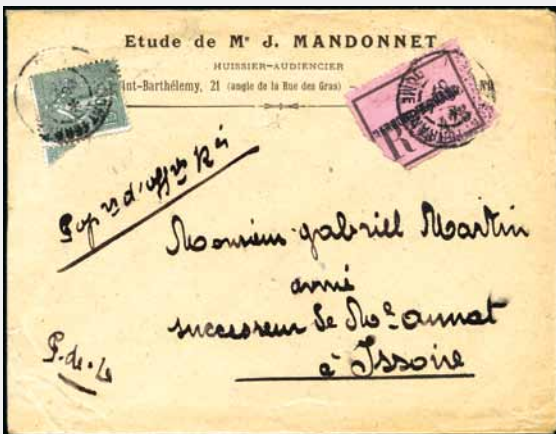 Etude de Me J. MANDONNET
HUISSIER-AUDIENCIER
int-Barthélemy, 21 (angle de la Rue des Gras)
R
Pap rs d'aff res Rés
Monsieur gabriel Martin
avoué
successeur de Me annat
à Issoire
P.-de-D.